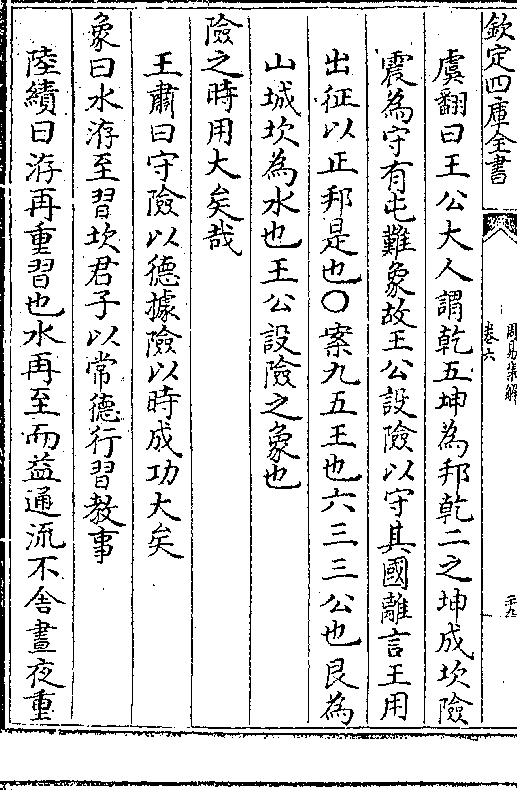 欽定四庫全書
周易集解
卷六
二十九
虞翻曰王公大人謂乾五坤為邦乾二之坤成坎險
震為守有屯難象故王公設險以守其國離言王用
出征以正邦是也○案九五王也六三三公也艮為
山城坎為水也王公設險之象也
險之時用大矣哉
王肅曰守險以德據險以時成功大矣
象曰水洊至習坎君子以常德行習教事
陸績曰洊再重習也水再至而益通流不舍晝夜重